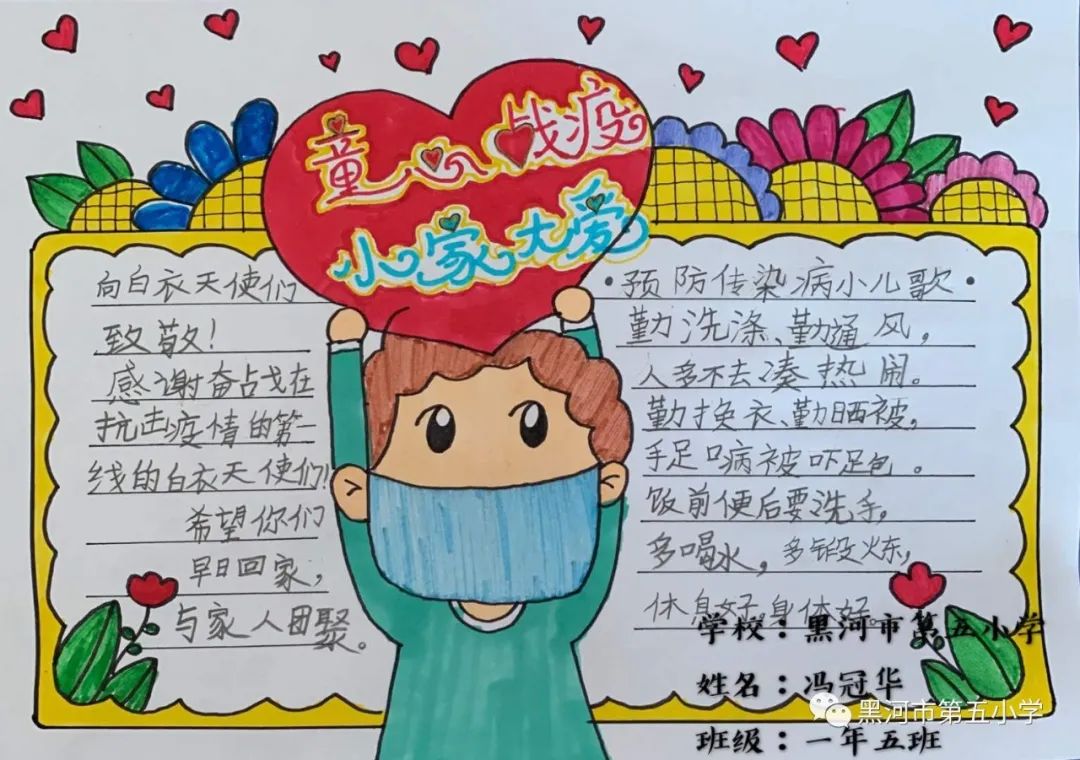 童心战疫
小家大爱
向白衣天使们
致敬!
感谢奋占戈在
抗击疫情的第一
线的白衣天使们!
希望你们
早日回家,
与家人团聚。
·预防传染病小儿歌·
勤洗涤、勤通风,
人多不去凑热闹。
勤换衣、勤晒被,
手足口病被吓足包。
饭前便后要洗手,
多喝水,多锻炼,
休息好,身体好。
学校:黑河市第五小学
姓名:冯冠华
黑河市第五小学
班级:一年五班